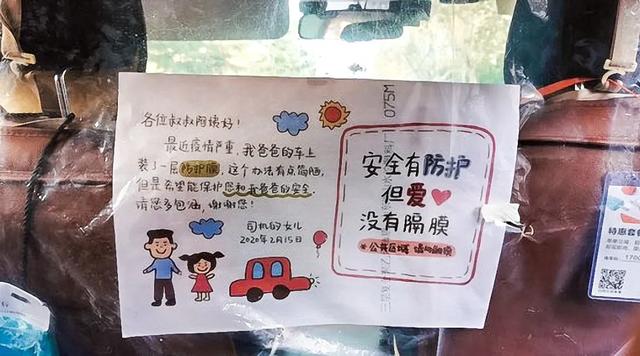 各位叔叔阿姨好！
最近疫情严重,我爸爸的车上
装了一层防护膜,这个办法有点简陋,
但是希望能保护您和我爸爸的安全.
请您多包涵,谢谢您！
司机的女儿
2020年2月15日
安全有防护
但爱
没有膈膜
公共区域 请勿
075M
特惠套餐